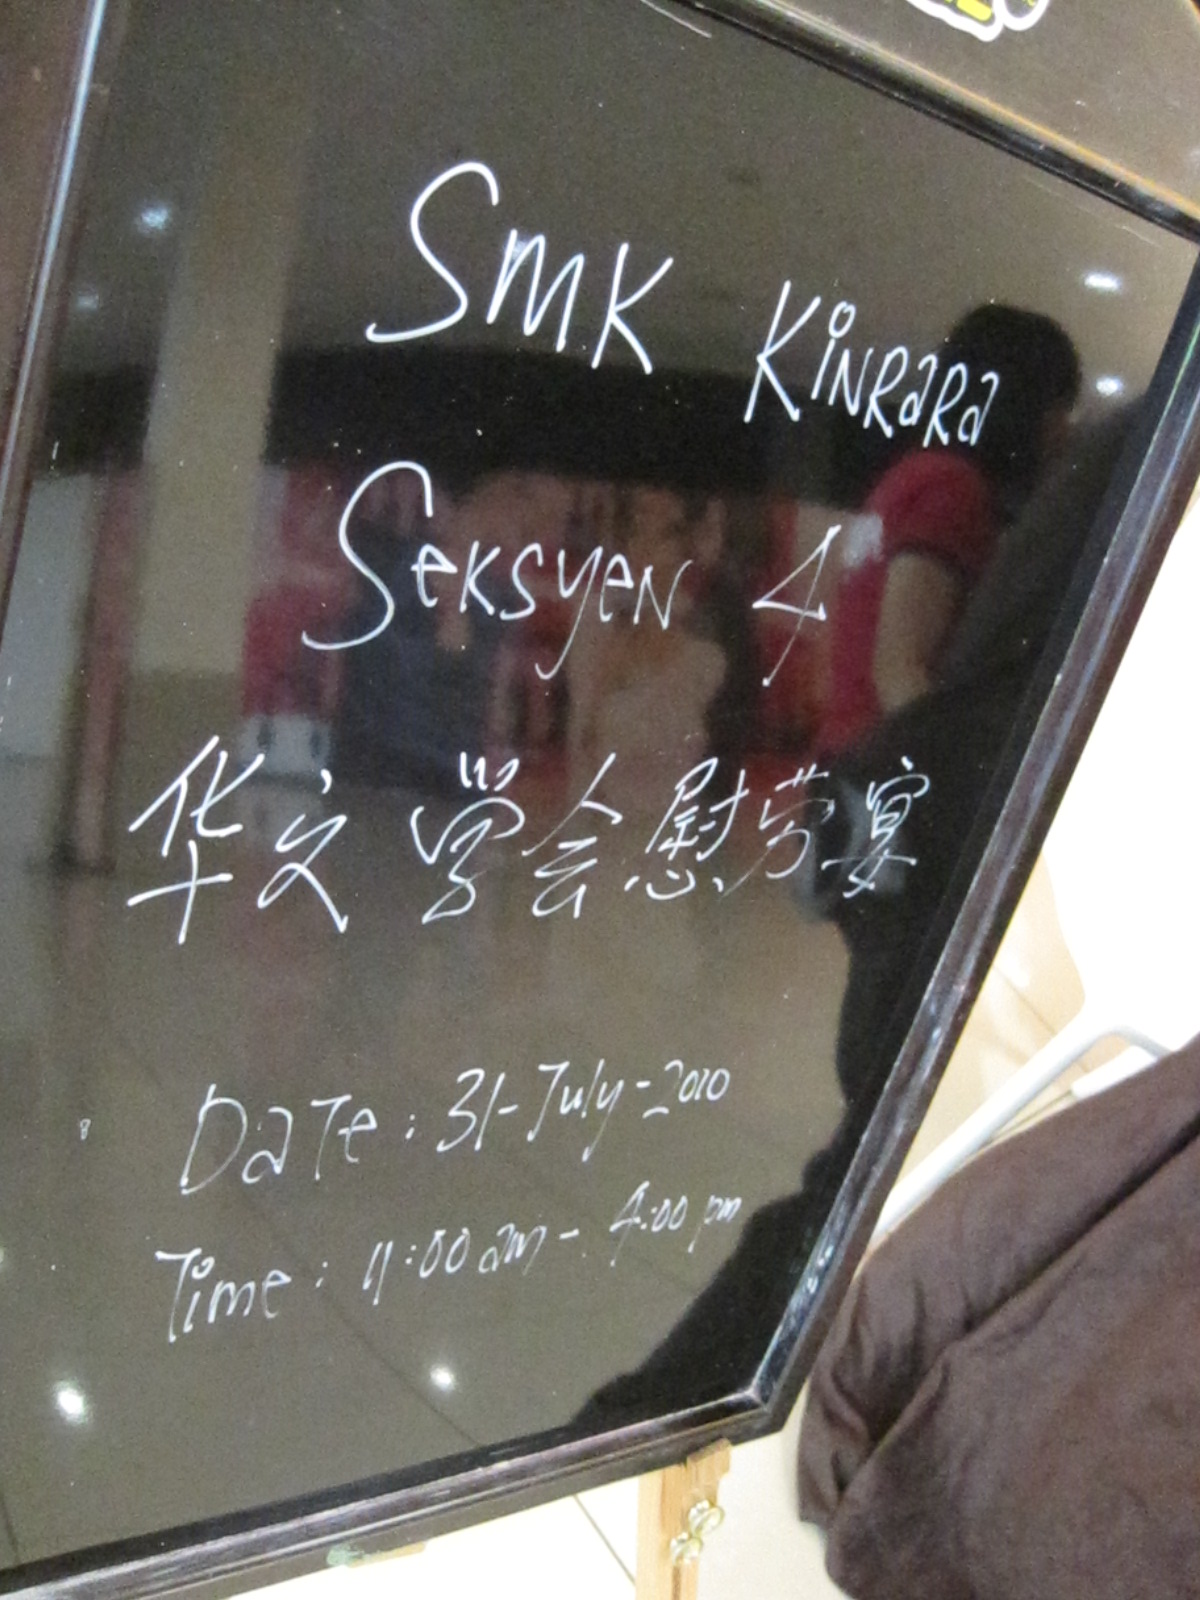 SMK KINRARA
Seksyen 4
华文学会慰劳宴
Date : 31-July-2010
Time : 11:00 am - 4:00 pm